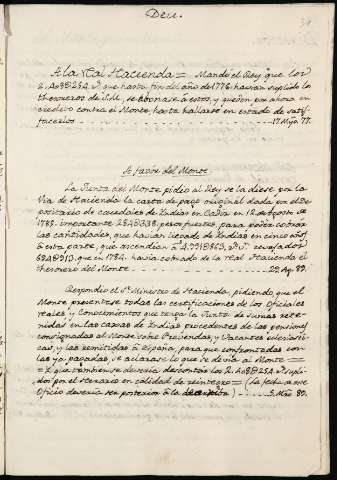 Deu.
A la Rl Hacienda = Mandó el Rey que los
2. que hasta fin del año de 1776 havian suplido los
thesoreros de S.M. se abonase á estos, y queden por ahora en
credito contra el Monte, hasta hallarse en estado de satis-
facerlos
A favor del Monte
La Junta del Monte pidio al Rey se la diese por la
Via de Hacienda la carta de pago original dada por el De-
positario de caudales de Indias en Cadiz en 12 de Agosto de
1785. importante pesos fuertes, para poder cobrar
las cantidades, que havian llegado de Indias en cinco años
á esta parte, que ascendian á
que en 1784. havia cobrado de la real Hacienda el
thesorero del Monte 29. Ag. 89.
Respondio el Sr. Ministro de Hacienda, pidiendo, que el
Monte presentase todas las certificaciones de los Oficiales
reales y Conocimientos que tenga la Junta de sumas rete-
nidas en las caxas de Indias procedentes de las pensiones
consignadas al Monte sobre Prevendas, y Vacantes eclesiasti-
cas, y las remitidas á España, para que confrontadas con
las ya pagadas, se aclarase lo que se devia al Monte =
que tambien se devería descontar los 2. supli-
dos por el Herario en calidad de reintegro = (La fecha a este
Oficio deveria ser posterior á la )